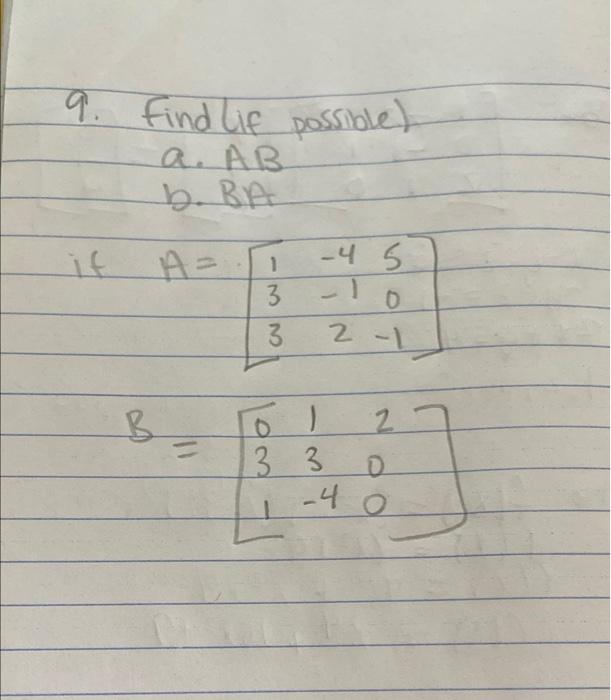 9. Find (if possible)
a. AB
b. BA
if A = [1 -4 5
3 -1 0
3 2 -1]
B = [0 1 2
3 3 0
1 -4 0]